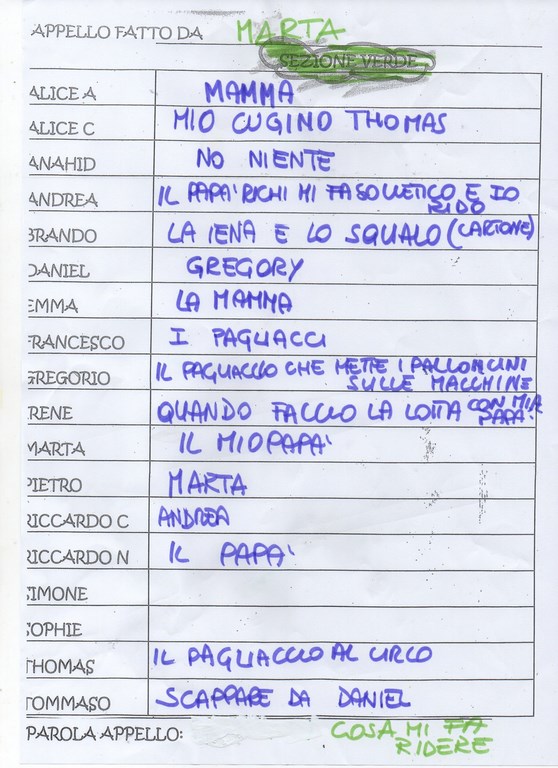 APPELLO FATTO DA MARTA
SEZIONE VERDE
ALICE A MAMMA
ALICE C MIO CUGINO THOMAS
ANAHID NO NIENTE
ANDREA IL PAPA' RICHI MI FA SOLLETICO E IO
RIDO
BRANDO LA IENA E LO SQUALO (CARTONE)
DANIEL GREGORY
EMMA LA MAMMA
FRANCESCO I PAGLIACCI
GREGORIO IL PAGLIACCIO CHE METTE I PALLONCINI
SULLE MACCHINE
IRENE QUANDO FACCIO LA LOTTA CON MIA
PAPA'
MARTA IL MIO PAPA'
PIETRO MARTA
RICCARDO C ANDREA
RICCARDO N IL PAPA'
SIMONE
SOPHIE
THOMAS IL PAGLIACCIO AL CIRCO
TOMMASO SCAPPARE DA DANIEL
PAROLA APPELLO: COSA MI FA
RIDERE